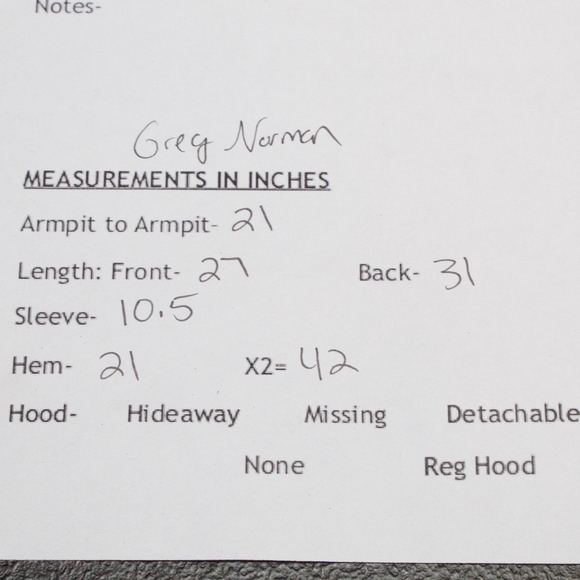 Notes-
Greg Norman
MEASUREMENTS IN INCHES
Armpit to Armpit- 21
Length: Front- 27 Back- 31
Sleeve- 10.5
Hem- 21 X2= 42
Hood- Hideaway Missing Detachable
None Reg Hood